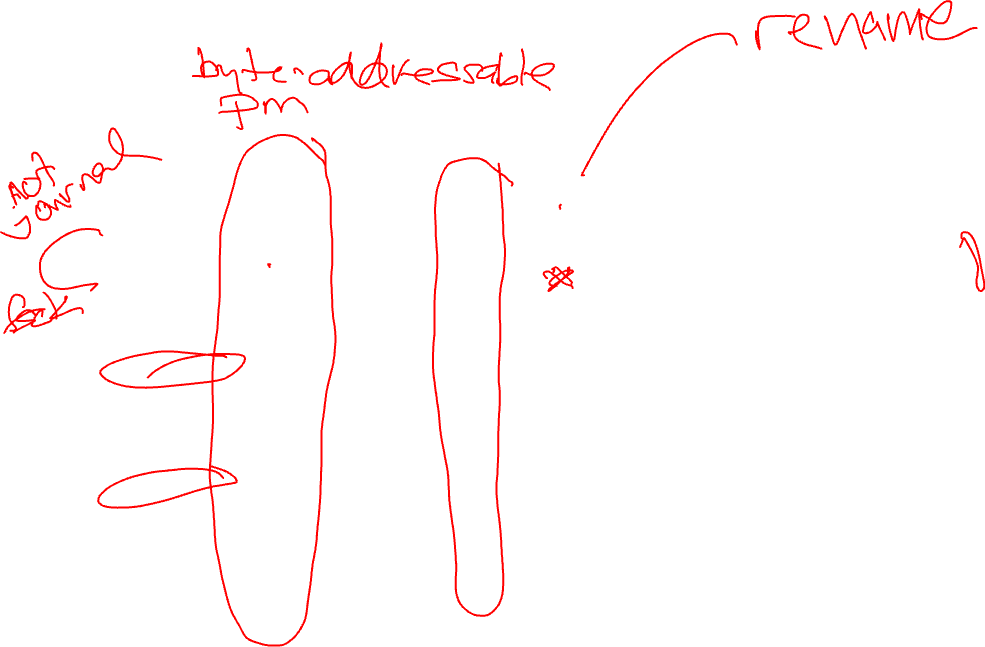 rename
byte-addressable
pm
not
journal